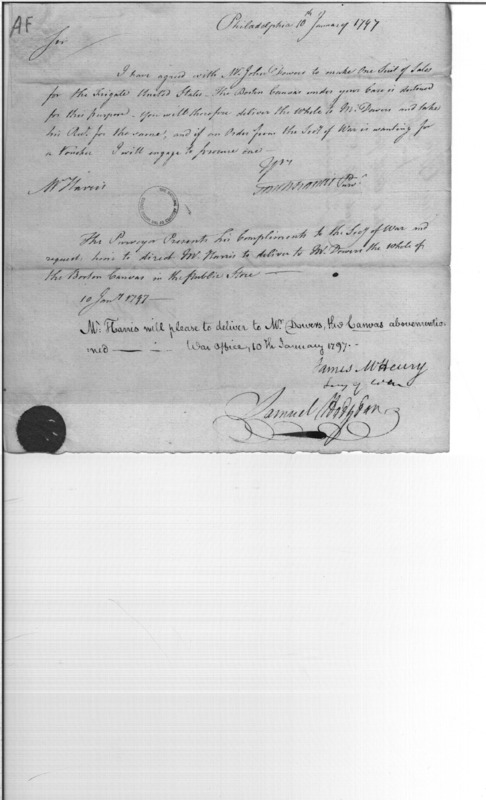 AF
Philadelphia 10th January 1797
Sir
I have agreed with Mr John Downs to make One Suit of Sales
for the Frigate United States. The Boston Canvas under your Care is destined
for this purpose. You will therefore deliver the whole to Mr Downs and take
his Rect for the same, and if an Order from the Secy of War is wanting for
a voucher I will engage to procure one
Mr Harris
The Purveyor Presents his Compliments to the Secy of War and
request him to direct Mr Harris to deliver to Mr Downs the whole of
the Boston Canvas in the public Store
10 Jany 1797
Mr Harris will please to deliver to Mr Downs, the Canvas abovementio
ned War Office, 10th January 1797.
James McHenry
Secy of War
Samuel Hodgdon